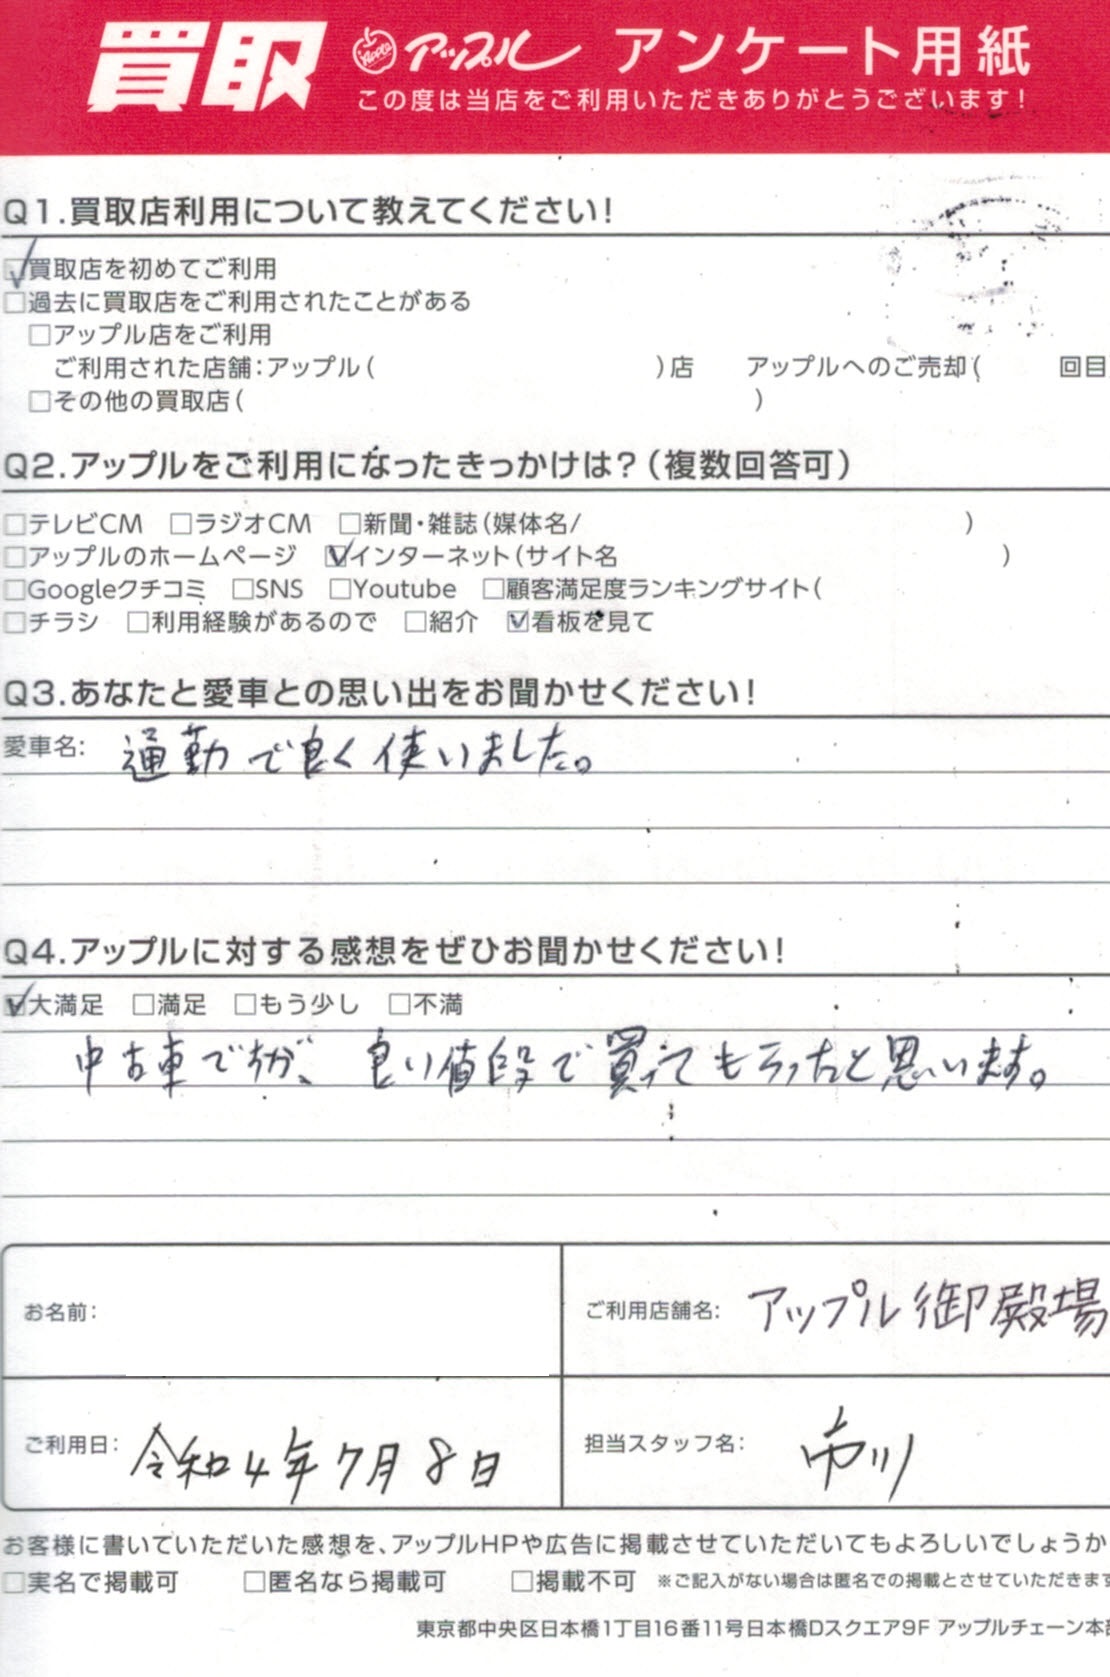 買取 Apple アップル アンケート用紙
この度は当店をご利用いただきありがとうございます!
Q1.買取店利用について教えてください!
☑買取店を初めてご利用
□過去に買取店をご利用されたことがある
□アップル店をご利用
ご利用された店舗:アップル( )店 アップルへのご売却( 回目
□その他の買取店( )
Q2.アップルをご利用になったきっかけは?(複数回答可)
□テレビCM □ラジオCM □新聞・雑誌(媒体名/ )
□アップルのホームページ ☑インターネット(サイト名 )
□Googleクチコミ □SNS □Youtube □顧客満足度ランキングサイト(
□チラシ □利用経験があるので □紹介 ☑看板を見て
Q3.あなたと愛車との思い出をお聞かせください!
愛車名: 通勤で良く使いました。
Q4.アップルに対する感想をぜひお聞かせください!
☑大満足 □満足 □もう少し □不満
中古車ですが、良い値段で買ってもらったと思います。
お名前: ご利用店舗名: アップル御殿場
ご利用日: 令和4年7月8日 担当スタッフ名: 市川
お客様に書いていただいた感想を、アップルHPや広告に掲載させていただいてもよろしいでしょうか
□実名で掲載可 □匿名なら掲載可 □掲載不可 ※ご記入がない場合は匿名での掲載とさせていただきます
東京都中央区日本橋1丁目16番11号日本橋Dスクエア9F アップルチェーン本部